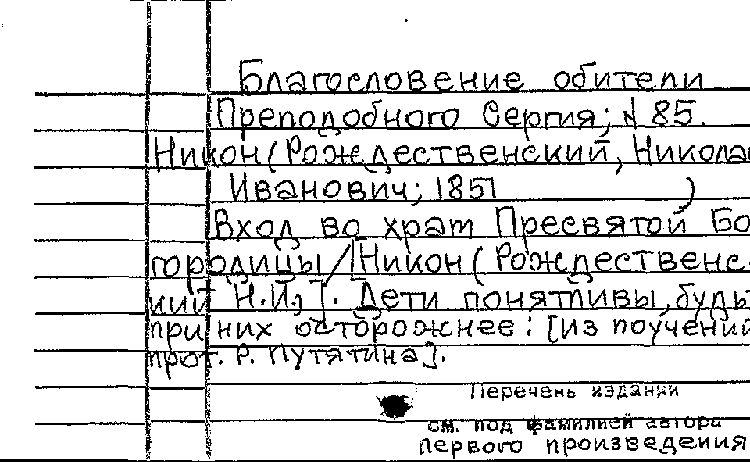 Благословение обители
Преподобного Сергия; № 85.
Никон (Рождественский, Никола
Иванович; 1851 )
Вход во храт Пресвятой Бо
городицы / [Никон (Рождественс-
кий Н.И.)]. Дети понятливы, будь
при них осторожнее: [из поучений
прот. Р. Путятина].
Перечень изданий
см. под фамилией автора
первого произведения